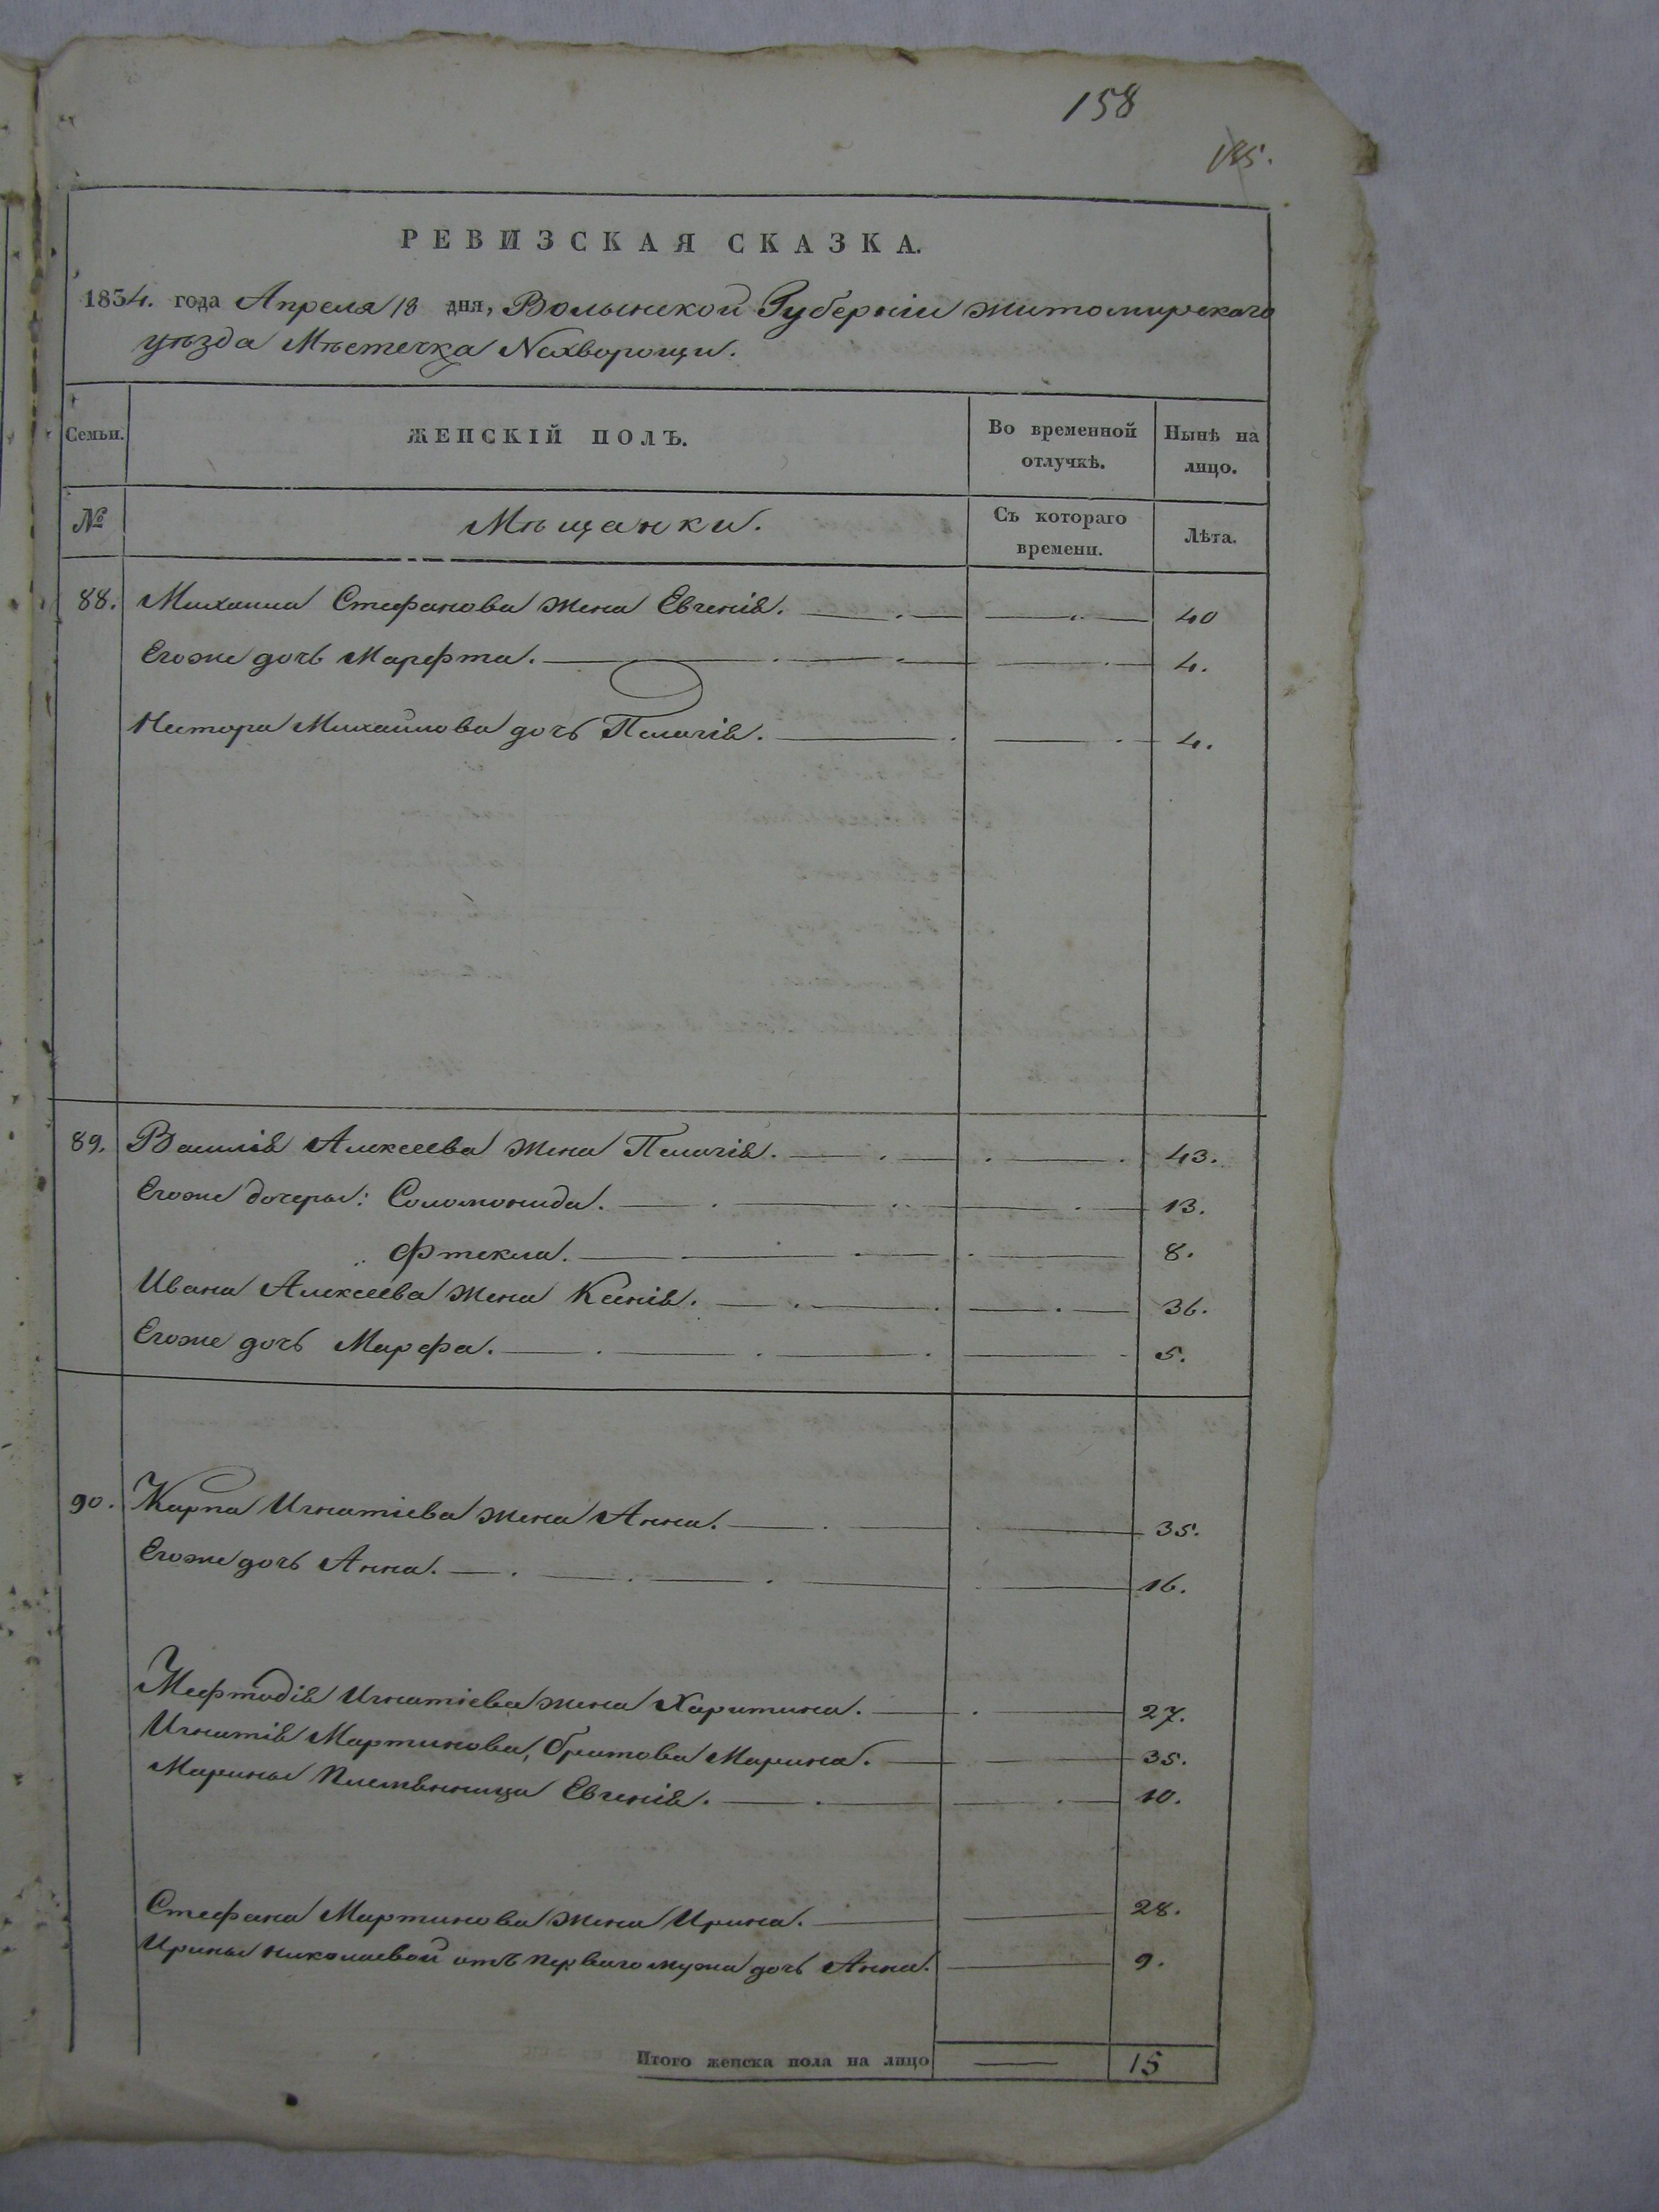 158
185.
РЕВИЗСКАЯ СКАЗКА.
1834. года Апреля 18 дня, Волынской Губерніи Житомирскаго
уѣзда Мѣстечка Нехворощи.
Семьи. ЖЕНСКІЙ ПОЛЪ. Во временной отлучкѣ. Нынѣ на лицо.
№ Мѣщанки. Съ котораго времени. Лѣта.
88. Михаила Стефанова жена Евгенія. 40
Егоже дочь Марефта. 4.
Нестора Михайлова дочь Пелагія. 4.
89. Василія Алексеева жена Пелагія. 43.
Егоже дочеры: Соломонида. 13.
Фтекла. 8.
Ивана Алексеева жена Ксенія. 36.
Егоже дочь Марфа. 5.
90. Карпа Игнатіева жена Анна. 35.
Егоже дочь Анна. 16.
Мефтодія Игнатіева жена Харитина. 27.
Игнатія Мартинова, братова Марина. 35.
Марины племѣнница Евгенія. 10.
Стефана Мартинова жена Ирина. 28.
Ирины Николаевой отъ перваго мужа дочь Анна. 9.
Итого женска пола на лицо 15